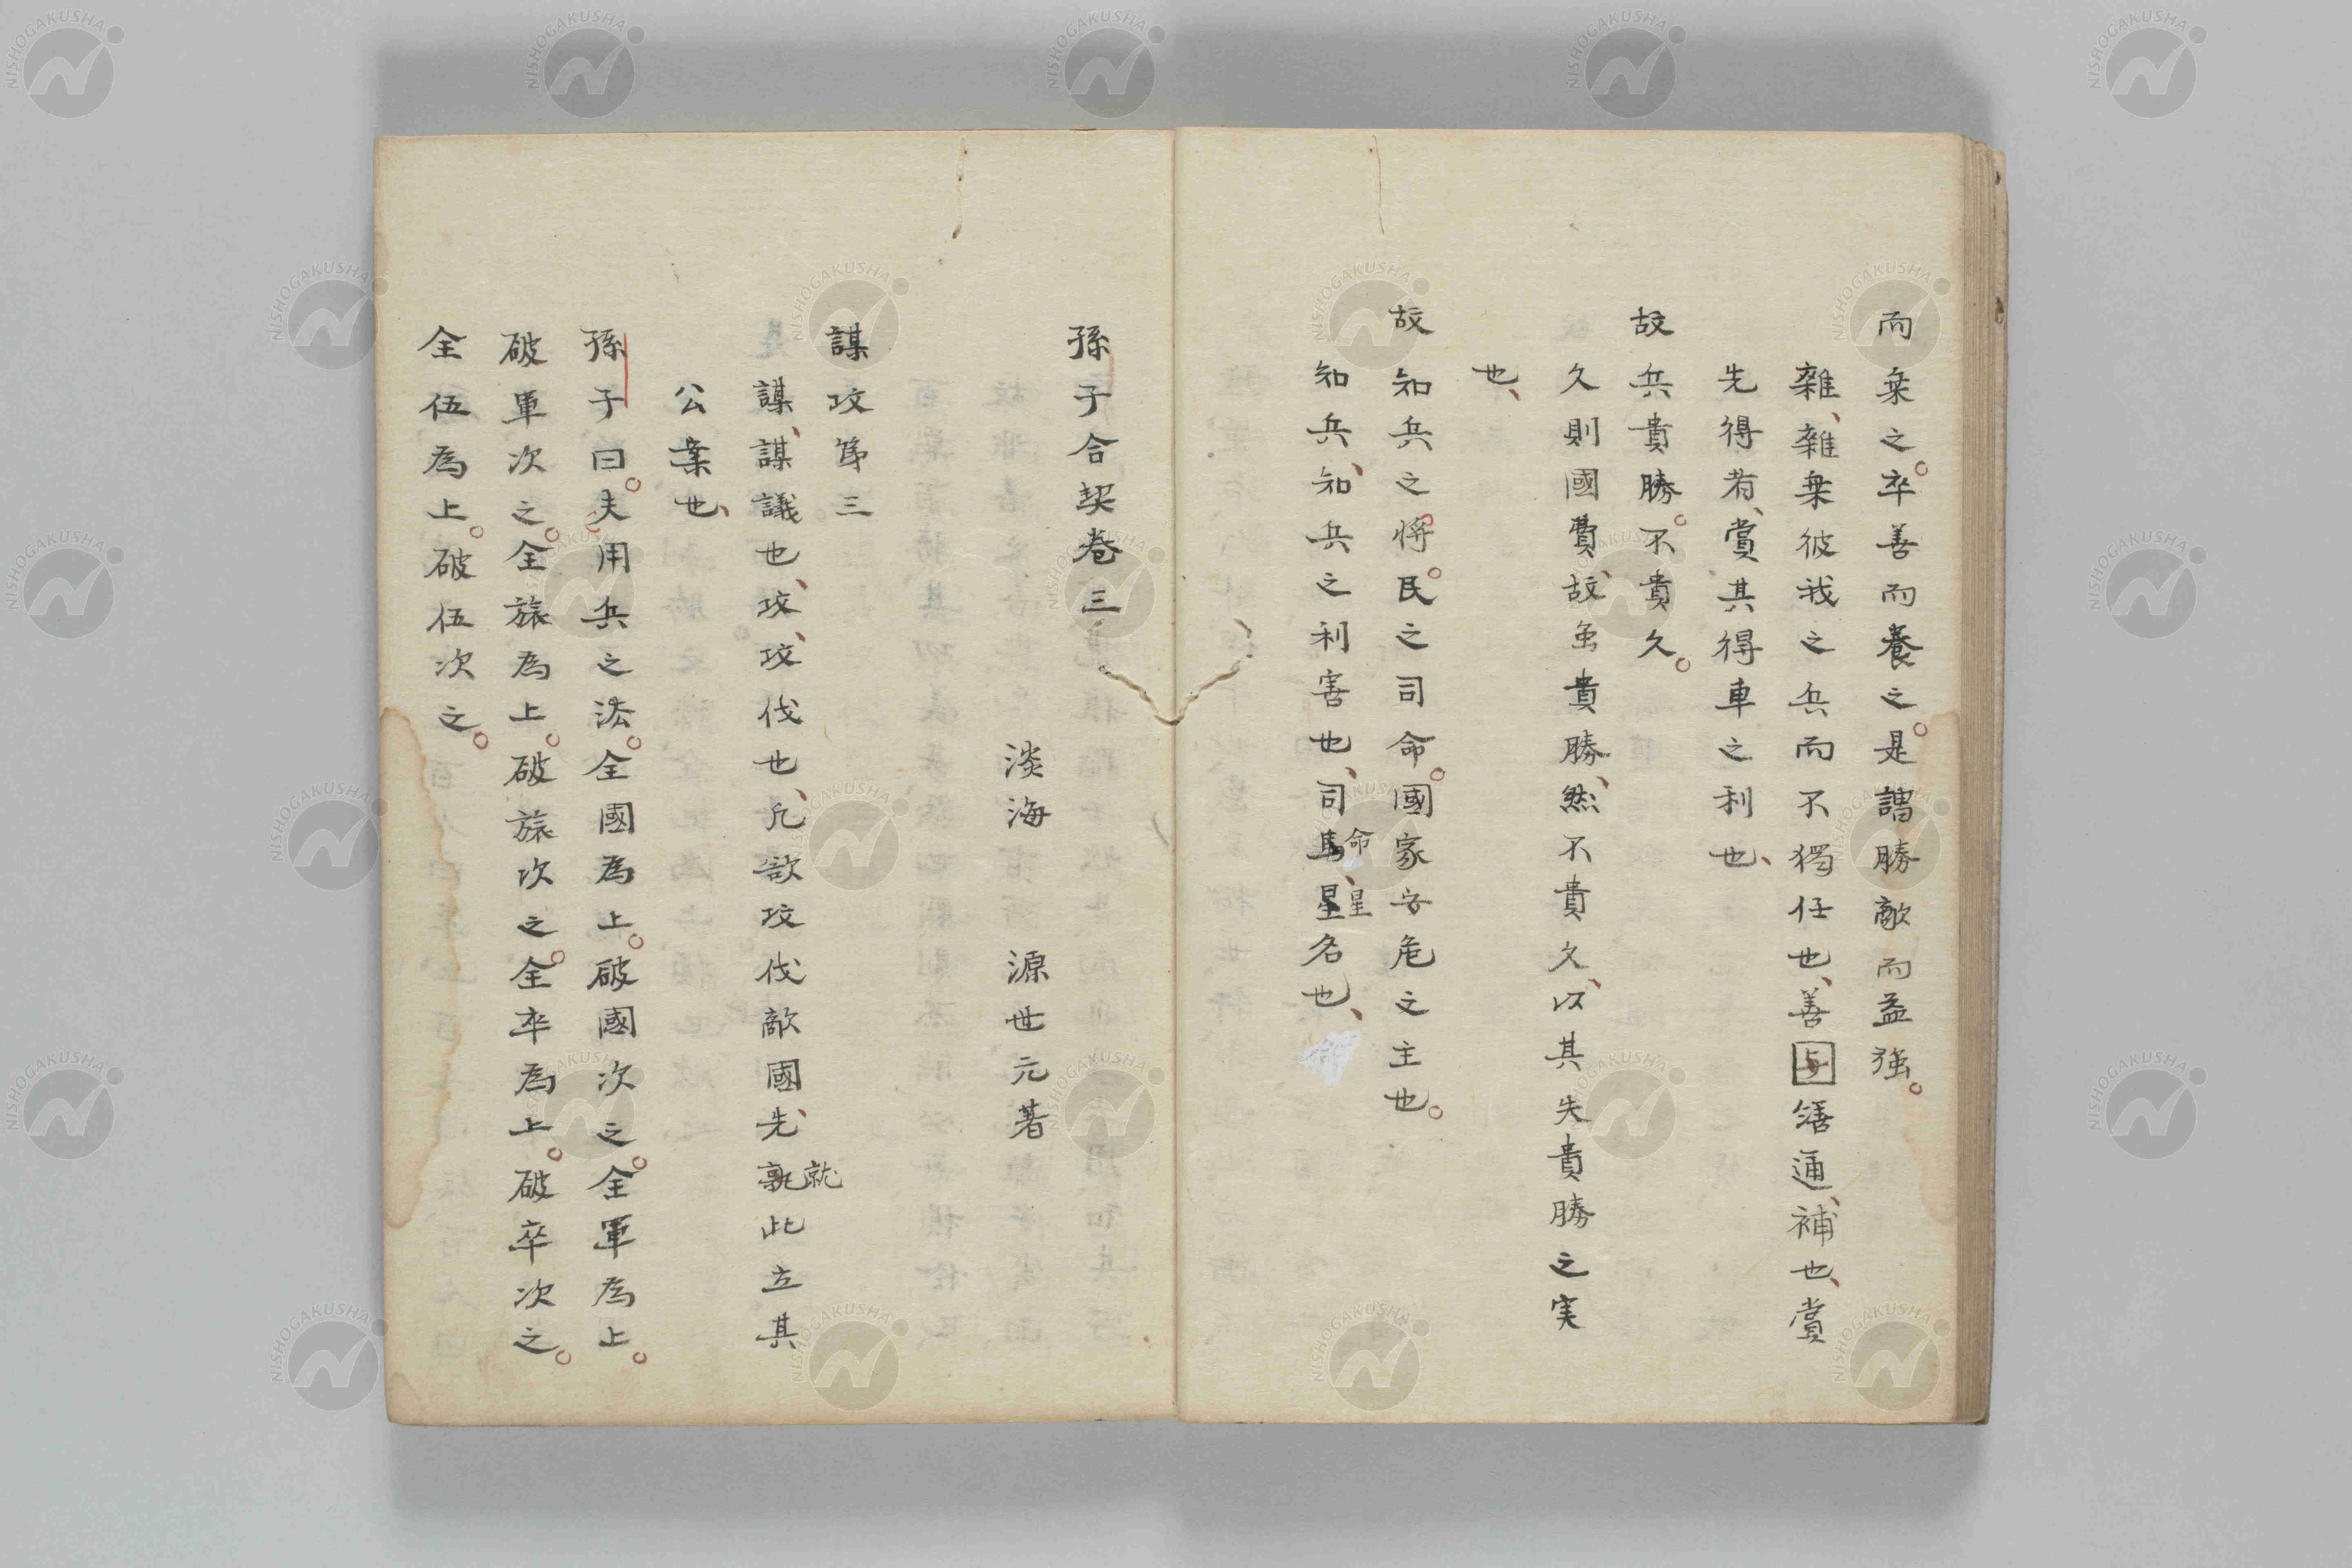 而乗之。卒善而養之。是謂勝敵而益強。
雜、雜乗彼我之兵而不獨任也、善与繕通、補也、賞
先得者、賞其得車之利也、
故兵貴勝。不貴久。
久則國費、故虽貴勝、然不貴久、以其失貴勝之実
也、
故知兵之將。民之司命。國家安危之主也。
知兵、知兵之利害也、司馬命、星星名也、
孫子合契卷三
淡海 源世元著
謀攻第三
謀、謀議也、攻、攻伐也、凡欲攻伐敵國、先孰就此立其
公案也、
孫子曰。夫用兵之法。全國為上。破國次之。全軍為上。
破軍次之。全旅為上。破旅次之。全卒為上。破卒次之。
全伍為上。破伍次之。
NISHOGAKUSHA